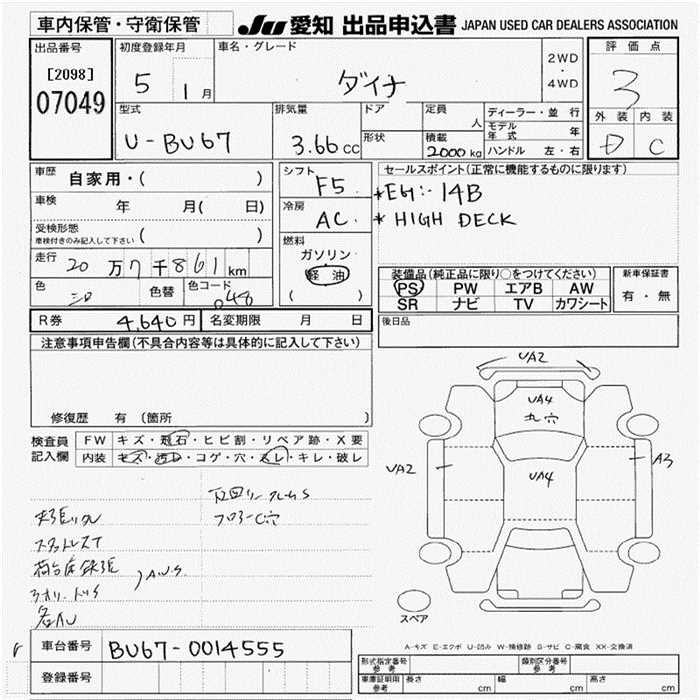 車内保管・守衛保管
JU 愛知 出品申込書 JAPAN USED CAR DEALERS ASSOCIATION
出品番号
[2098]
07049
初度登録年月
5 1月
車名・グレード
ダイナ
2WD
・
4WD
評価点
3
外装 内装
D C
型式
U-BU67
排気量
3.66cc
ドア
形状
定員
人
積載
2000kg
ディーラー・並行
モデル年式 年
ハンドル 左・右
車歴 自家用・( )
車検 年 月( 日)
受検形態
車検付きのみ記入して下さい ( )
走行 20万7千861km
色 シロ 色替 色コード 048
シフト
F5
冷房
AC
燃料
ガソリン
軽油
( )
セールスポイント(正常に機能するものに限ります)
*EG:-14B
* HIGH DECK
装備品(純正品に限り○をつけてください)
PS PW エアB AW
SR ナビ TV カワシート
新車保証書
有・無
R券 4,640円 名変期限 月 日
後日品
注意事項申告欄(不具合内容等は具体的に記入して下さい)
修復歴 有 (箇所 )
検査員記入欄
FW キズ・飛石・ヒビ割・リペア跡・X要
内装 キズ・汚レ・コゲ・穴・スレ・キレ・破レ
フロアーC穴
A.U.S
UA2
UA4
UA4
UA2
A3
スペア
A-キズ E-エクボ U-凹み W-補修跡 S-サビ C-腐食 XX-交換済
車台番号 BU67-0014555
登録番号
形式指定番号 参考
類別区分番号 参考
車庫証明用 参考 長さ cm 幅 cm 高さ cm